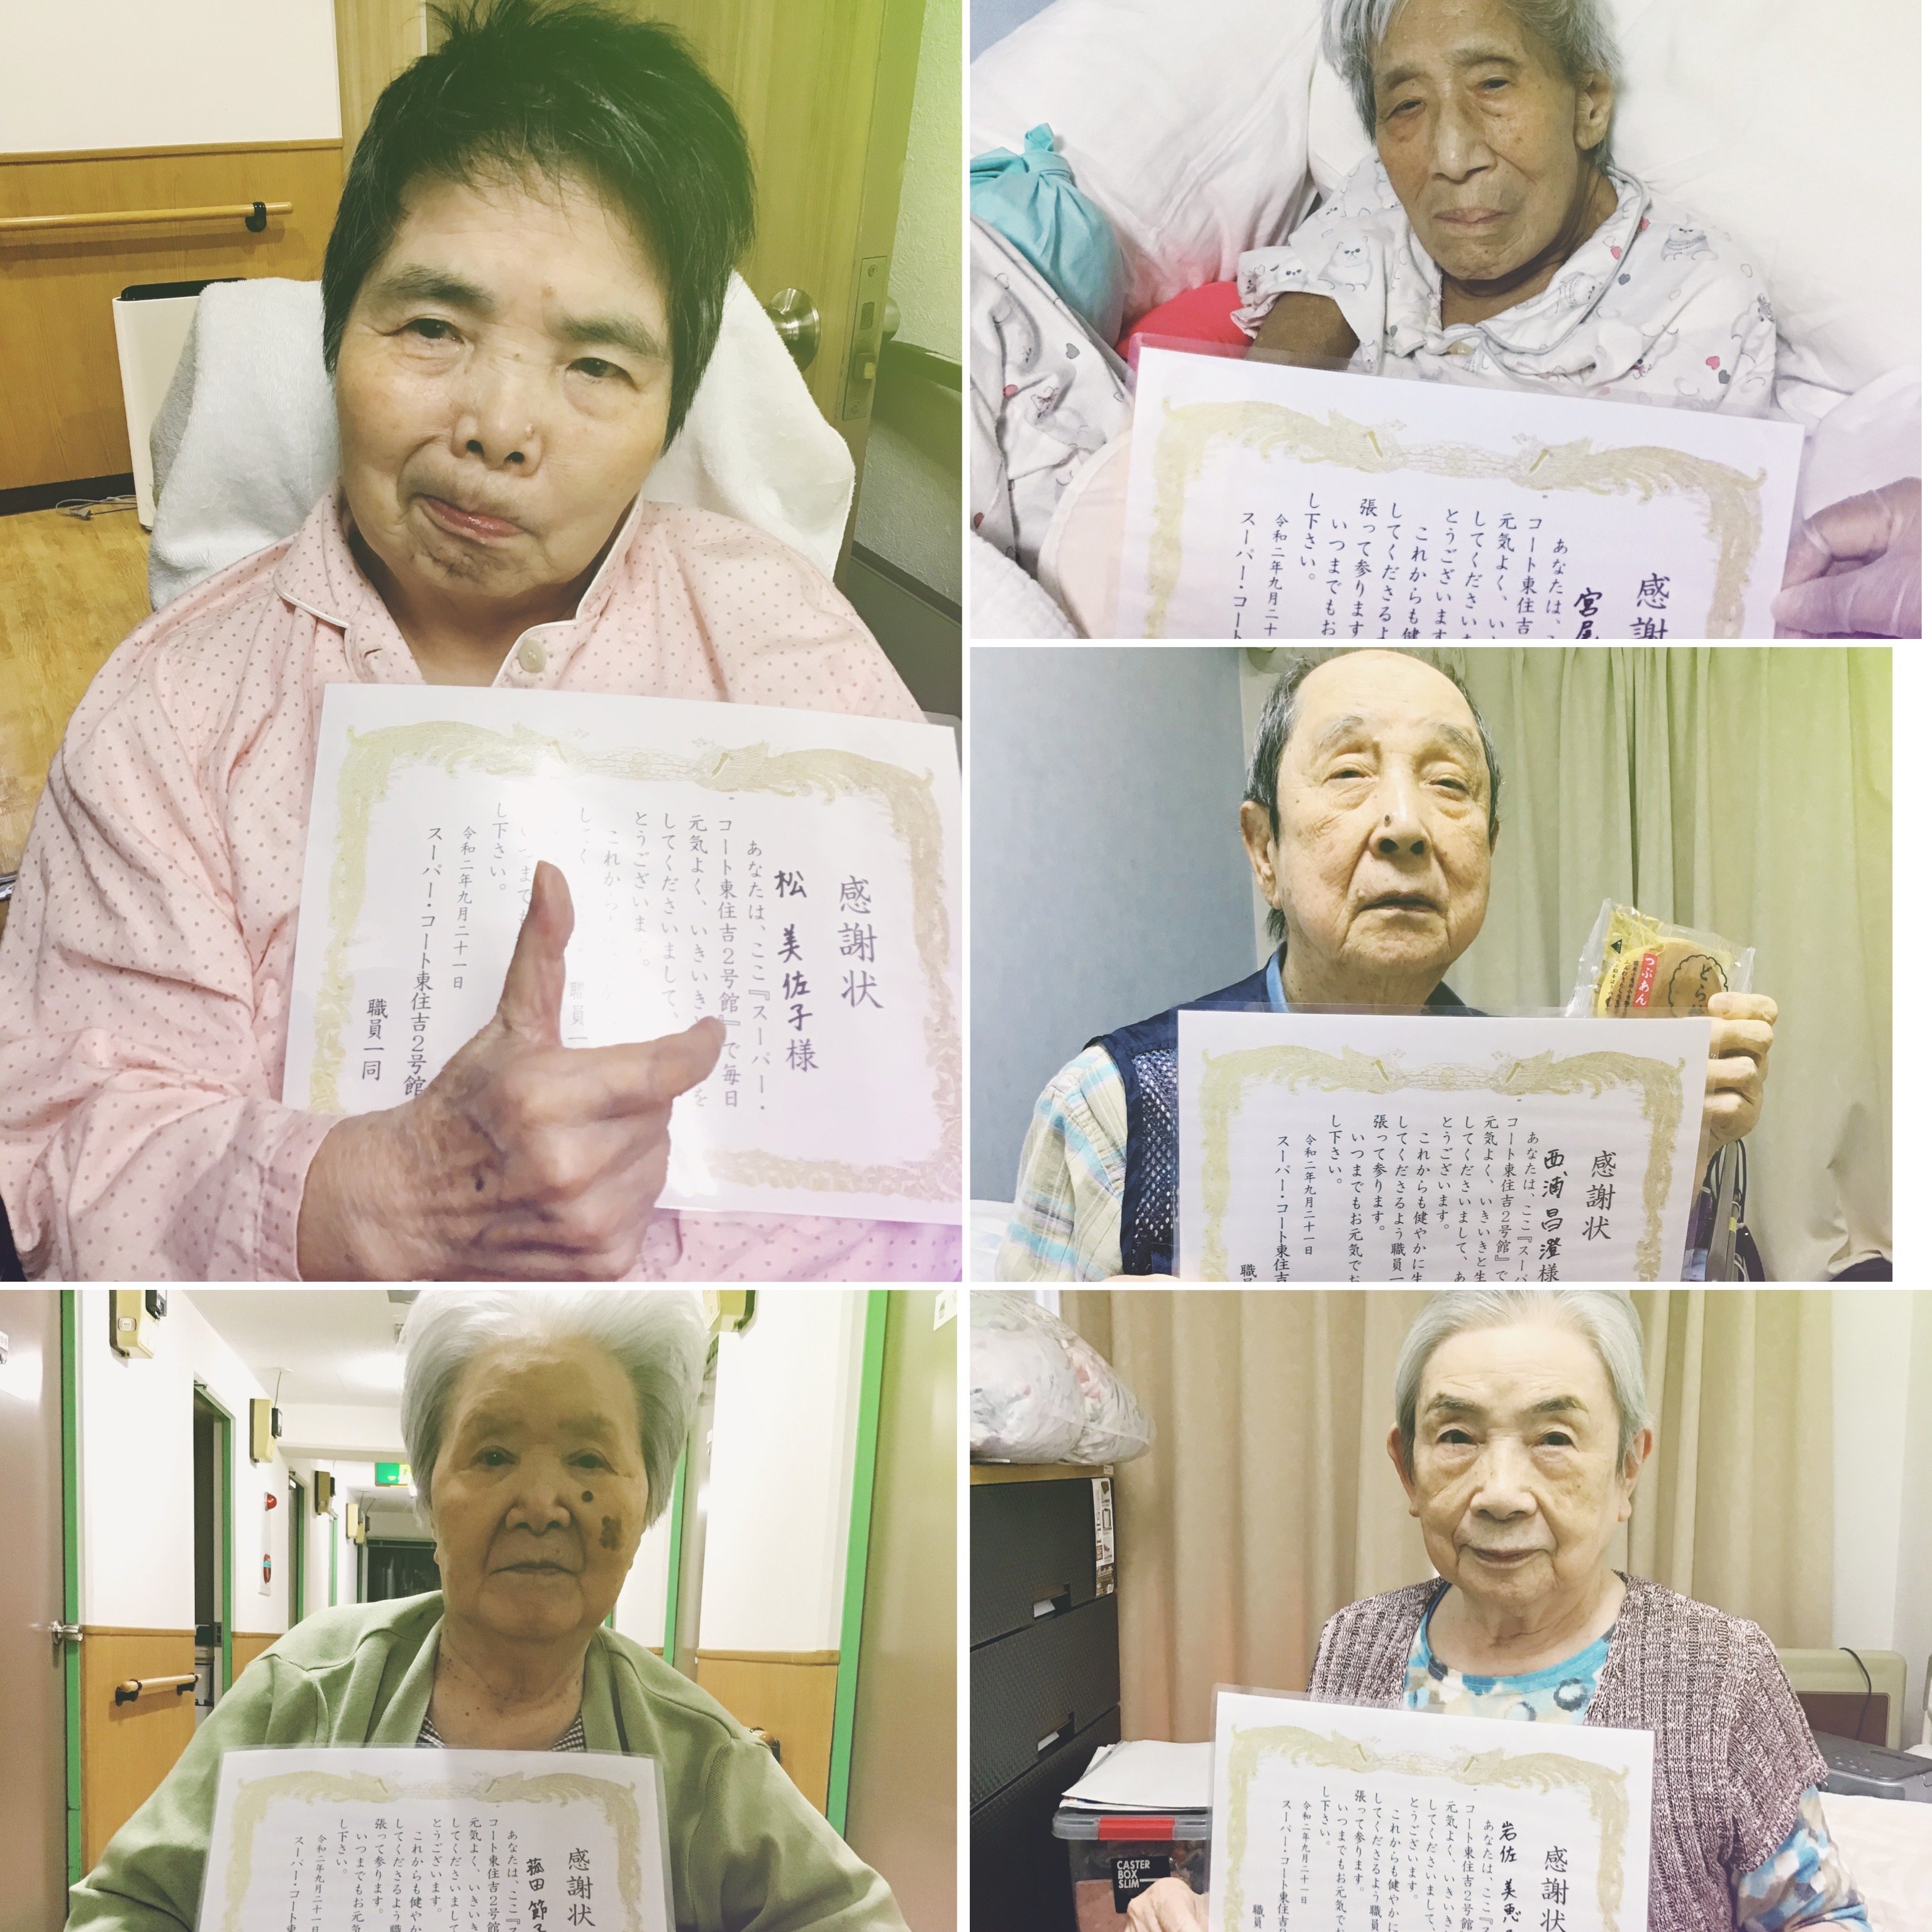 感謝状
松 美佐子様
あなたは、ここ『スーパー・
コート東住吉2号館』で毎日
元気よく、いきいき
してくださいまして、
とうございます。
これから
し下さい。
令和二年九月二十一日
スーパー・コート東住吉2号館
職員一同
感謝
宮尾
あなたは、
コート東住吉
元気よく、い
してくださいま
とうございます
これからも健
してくださるよ
張って参ります
いつまでもお
し下さい。
令和二年九月二十
スーパー・コート
どら
つぶあん
感謝状
西浦 昌澄様
あなたは、ここ『スーパ
コート東住吉2号館』で
元気よく、いきいきと生
してくださいまして、あ
とうございます。
これからも健やかに生
してくださるよう職員一
張って参ります。
いつまでもお元気でお
し下さい。
令和二年九月二十一日
スーパー・コート東住吉
職員
感謝状
菰田 節子
あなたは、ここ『ス
コート東住吉2号館
元気よく、いきいき
してくださいまして
とうございます。
これからも健やか
してくださるよう職
張って参ります。
いつまでもお元気
し下さい。
令和二年九月二十一日
スーパー・コート東
感謝状
岩佐 美恵
あなたは、ここ『スー
コート東住吉2号館
元気よく、いきいき
してくださいまして、
とうございます。
これからも健やかに
してくださるよう職員
張って参ります。
いつまでもお元気で
し下さい。
令和二年九月二十一日
スーパー・コート東住吉
職員
CASTER
BOX
SLIM